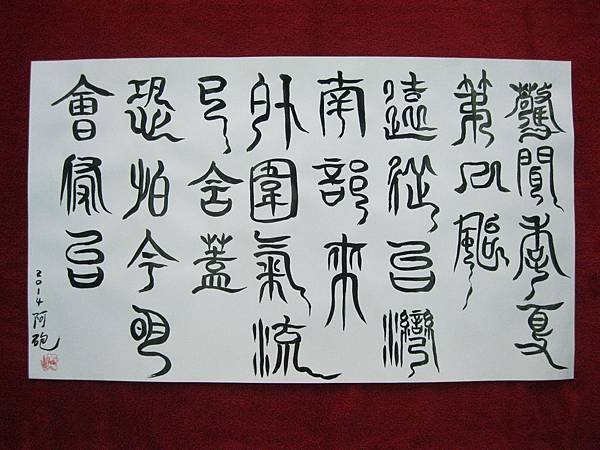 驚聞季夏
第颱
遠從台灣
南部來
外圍氣流
已舍蓋
恐怕今明
會侵台
2014 阿砲